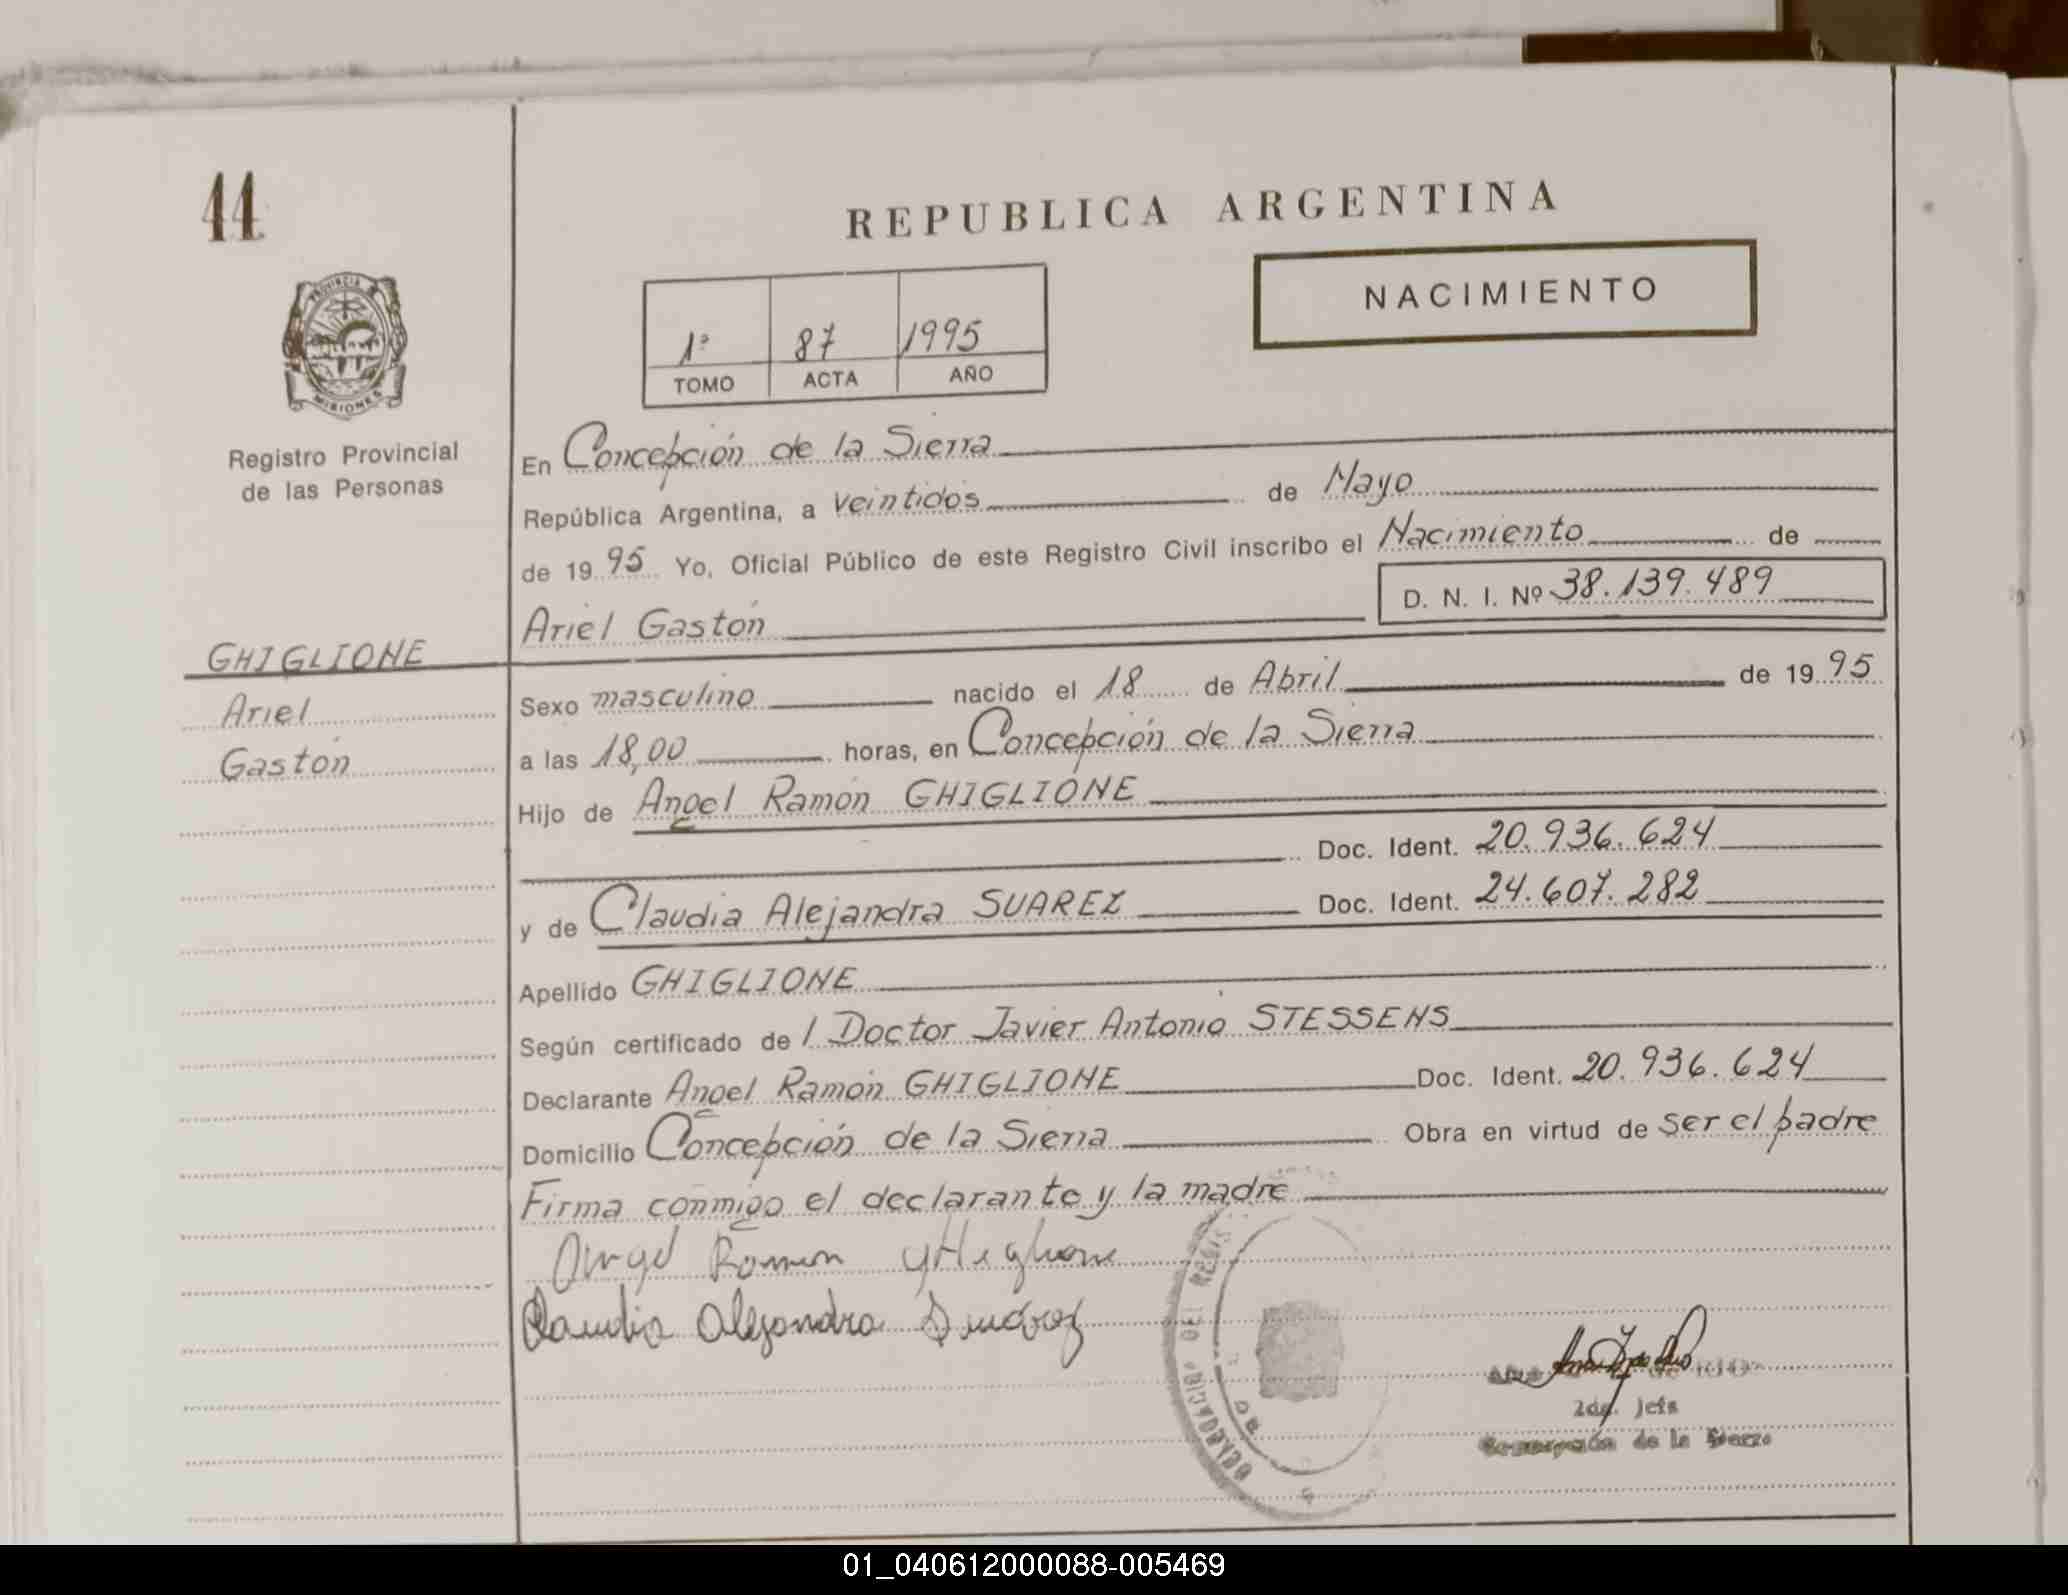 44
REPUBLICA ARGENTINA
NACIMIENTO
1º 87 1995
TOMO ACTA AÑO
PROVINCIA DE
MISIONES
Registro Provincial
de las Personas
En Concepción de la Sierra
República Argentina, a veintidos de Mayo
de 1995 Yo, Oficial Público de este Registro Civil inscribo el Nacimiento de
D. N. I. Nº 38.139.489
Ariel Gastón
GHIGLIONE
Ariel
Gastón
Sexo masculino nacido el 18 de Abril de 1995
a las 18,00 horas, en Concepción de la Sierra
Hijo de Angel Ramón GHIGLIONE
Doc. Ident. 20.936.624
y de Claudia Alejandra SUAREZ Doc. Ident. 24.607.282
Apellido GHIGLIONE
Según certificado de l Doctor Javier Antonio STESSENS
Declarante Angel Ramón GHIGLIONE Doc. Ident. 20.936.624
Domicilio Concepción de la Sierra Obra en virtud de ser el padre
Firma conmigo el declarante y la madre
Angel Ramon Ghiglione
Claudia Alejandra Suárez
DELEGACION DEL REGIS
2da. Jefa
Concepción de la Sierra
01_040612000088-005469